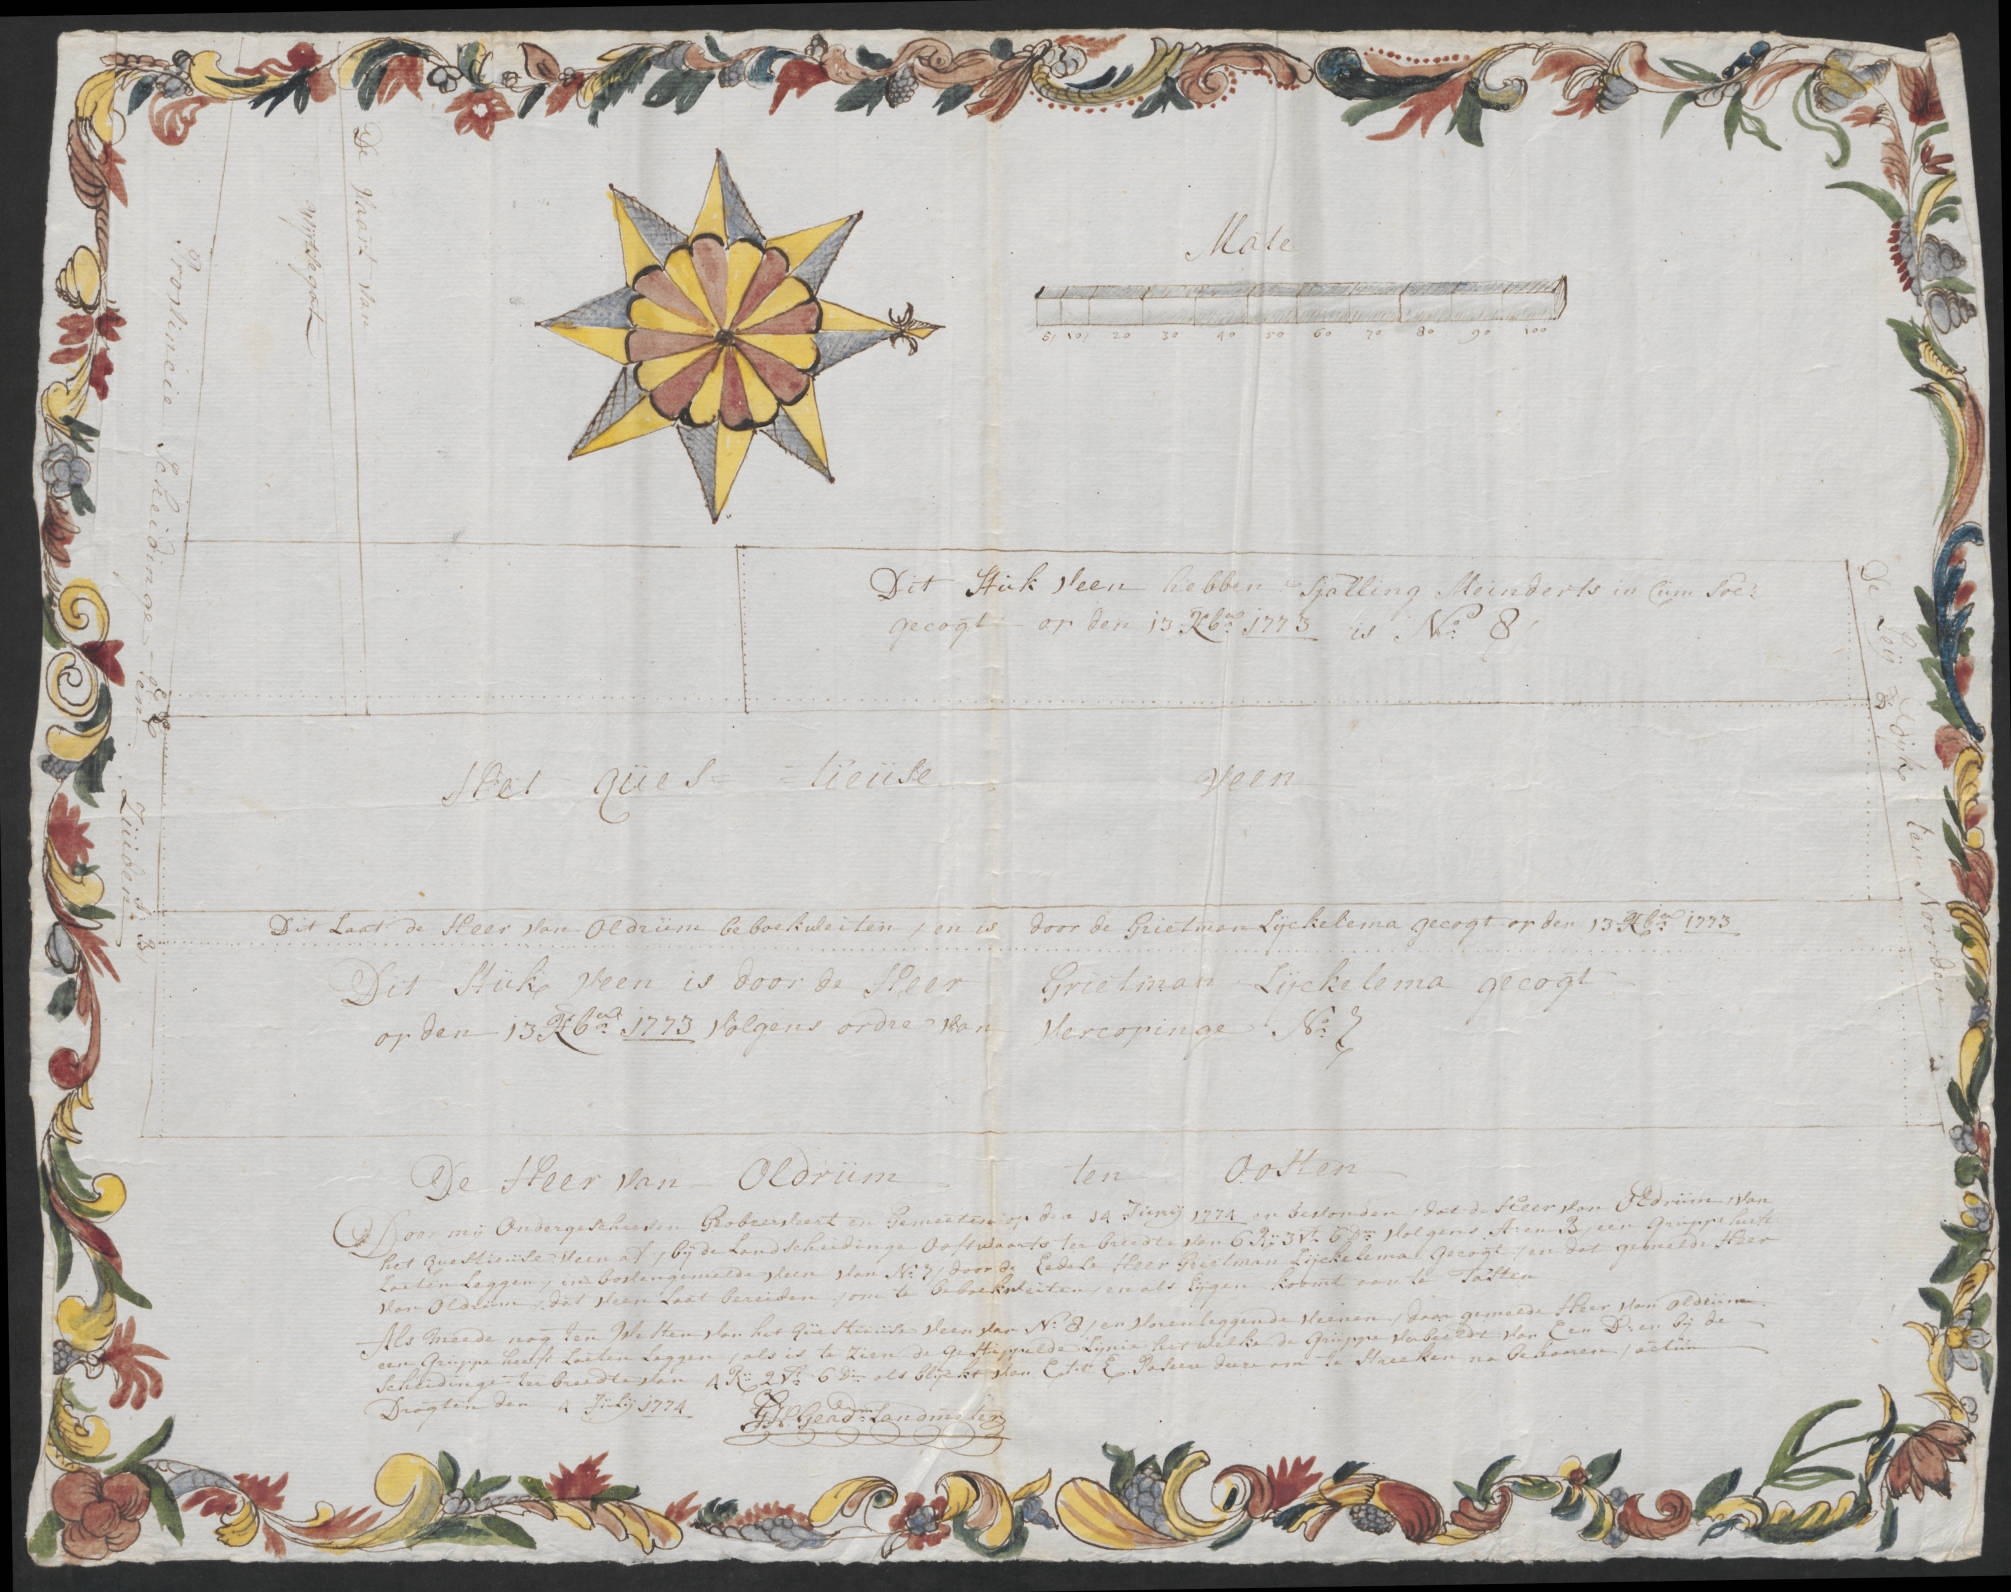 De Vaart van
Provincie Scheidinge ten Zuiden
Mate
5 10 20 30 40 50 60 70 80 90 100
Dit Stuk Veen hebben Sjolling Meinderts in Cum Soc:
gecogt op den 13 Xbr 1773 is No 8
De Leij Dijk ten Noorden
Het ques= =tieuse veen
Dit Laat de Heer van Oldrum beboekweiten, en is door de Grietman Lyckelema gecogt op den 13 Xbr 1773
Dit Stuk Veen is door de Heer Grietman Lyckelema gecogt
op den 13 Xbr 1773 volgens ordre van vercopinge No 7
De Heer van Oldrum ten Oosten
Door mij Ondergeschreven Geobserveert en Gemeeten op den 14 Junij 1774 en bevonden, dat de Heer van Oldrum, van
het questieuse veen af, bij de Landscheidinge Oostwaarts ter breedte van 6 R: 3 Vt 6 Dm volgens A: en B, een Gruppe heeft
Laeten Leggen, in bovengemelde veen van No 7, door de Eedele Heer Grietman Lyckelema, gecogt, en dat gemelde Heer
van Oldrum, dat veen Laat bereiden, om te beboekweiten, en als Eijgen koomt aan te Tasten
Als meede nog ten Westen van het questieuse veen van No 8, en vorenleggende veenen, door gemelde Heer van Oldrum
een Gruppe heeft Laeten Leggen, als is te zien de Gestippelde Lynie het welke de Gruppe verbeeldt van C en D: en bij de
scheidinge ter breedte van 4 R: 2 Vt 6 Dm als blijckt van C tot E om te Strecken na behooren, actum
Drogten den 4 Julij 1774
Landmeter